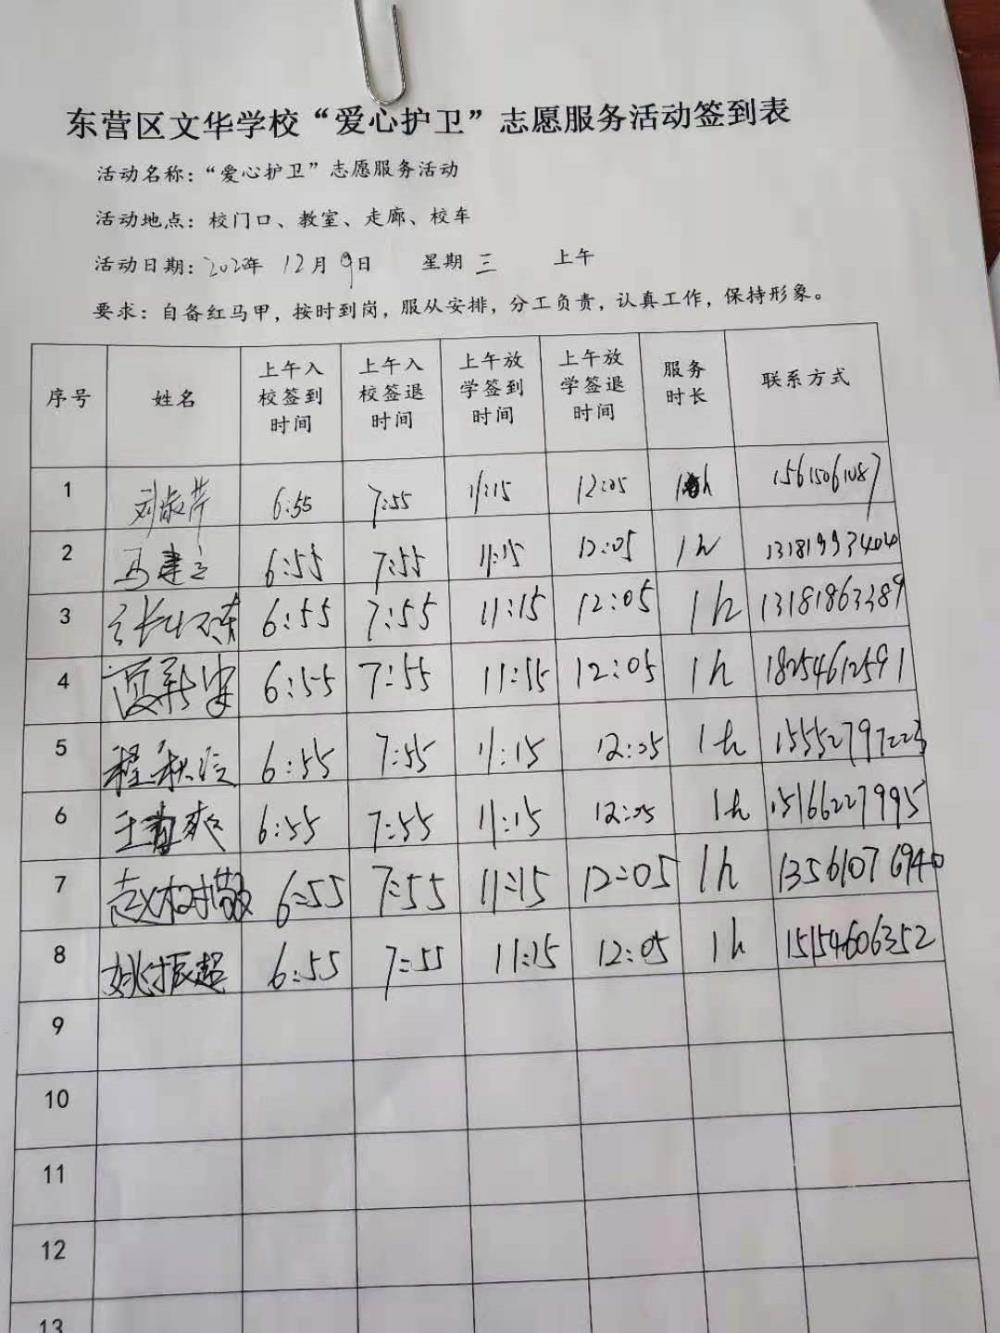 东营区文华学校“爱心护卫”志愿服务活动签到表
活动名称：“爱心护卫”志愿服务活动
活动地点：校门口、教室、走廊、校车
活动日期：2020年 12月 9日 星期 三 上午
要求：自备红马甲，按时到岗，服从安排，分工负责，认真工作，保持形象。
序号 姓名 上午入校签到时间 上午入校签退时间 上午放学签到时间 上午放学签退时间 服务时长 联系方式
1 刘淑芹 6:55 7:55 11:15 12:05 1h 15615061087
2 马建立 6:55 7:55 11:15 12:05 1h 13181993404
3 6:55 7:55 11:15 12:05 1h 13181863389
4 6:55 7:55 11:55 12:05 1h 18254612591
5 程秋 6:55 7:55 11:15 12:05 1h 15552797223
6 王 爽 6:55 7:55 11:15 12:05 1h 15166227995
7 赵树敬 6:55 7:55 11:15 12:05 1h 13561076940
8 姚振超 6:55 7:55 11:15 12:05 1h 15154606352
9
10
11
12
13